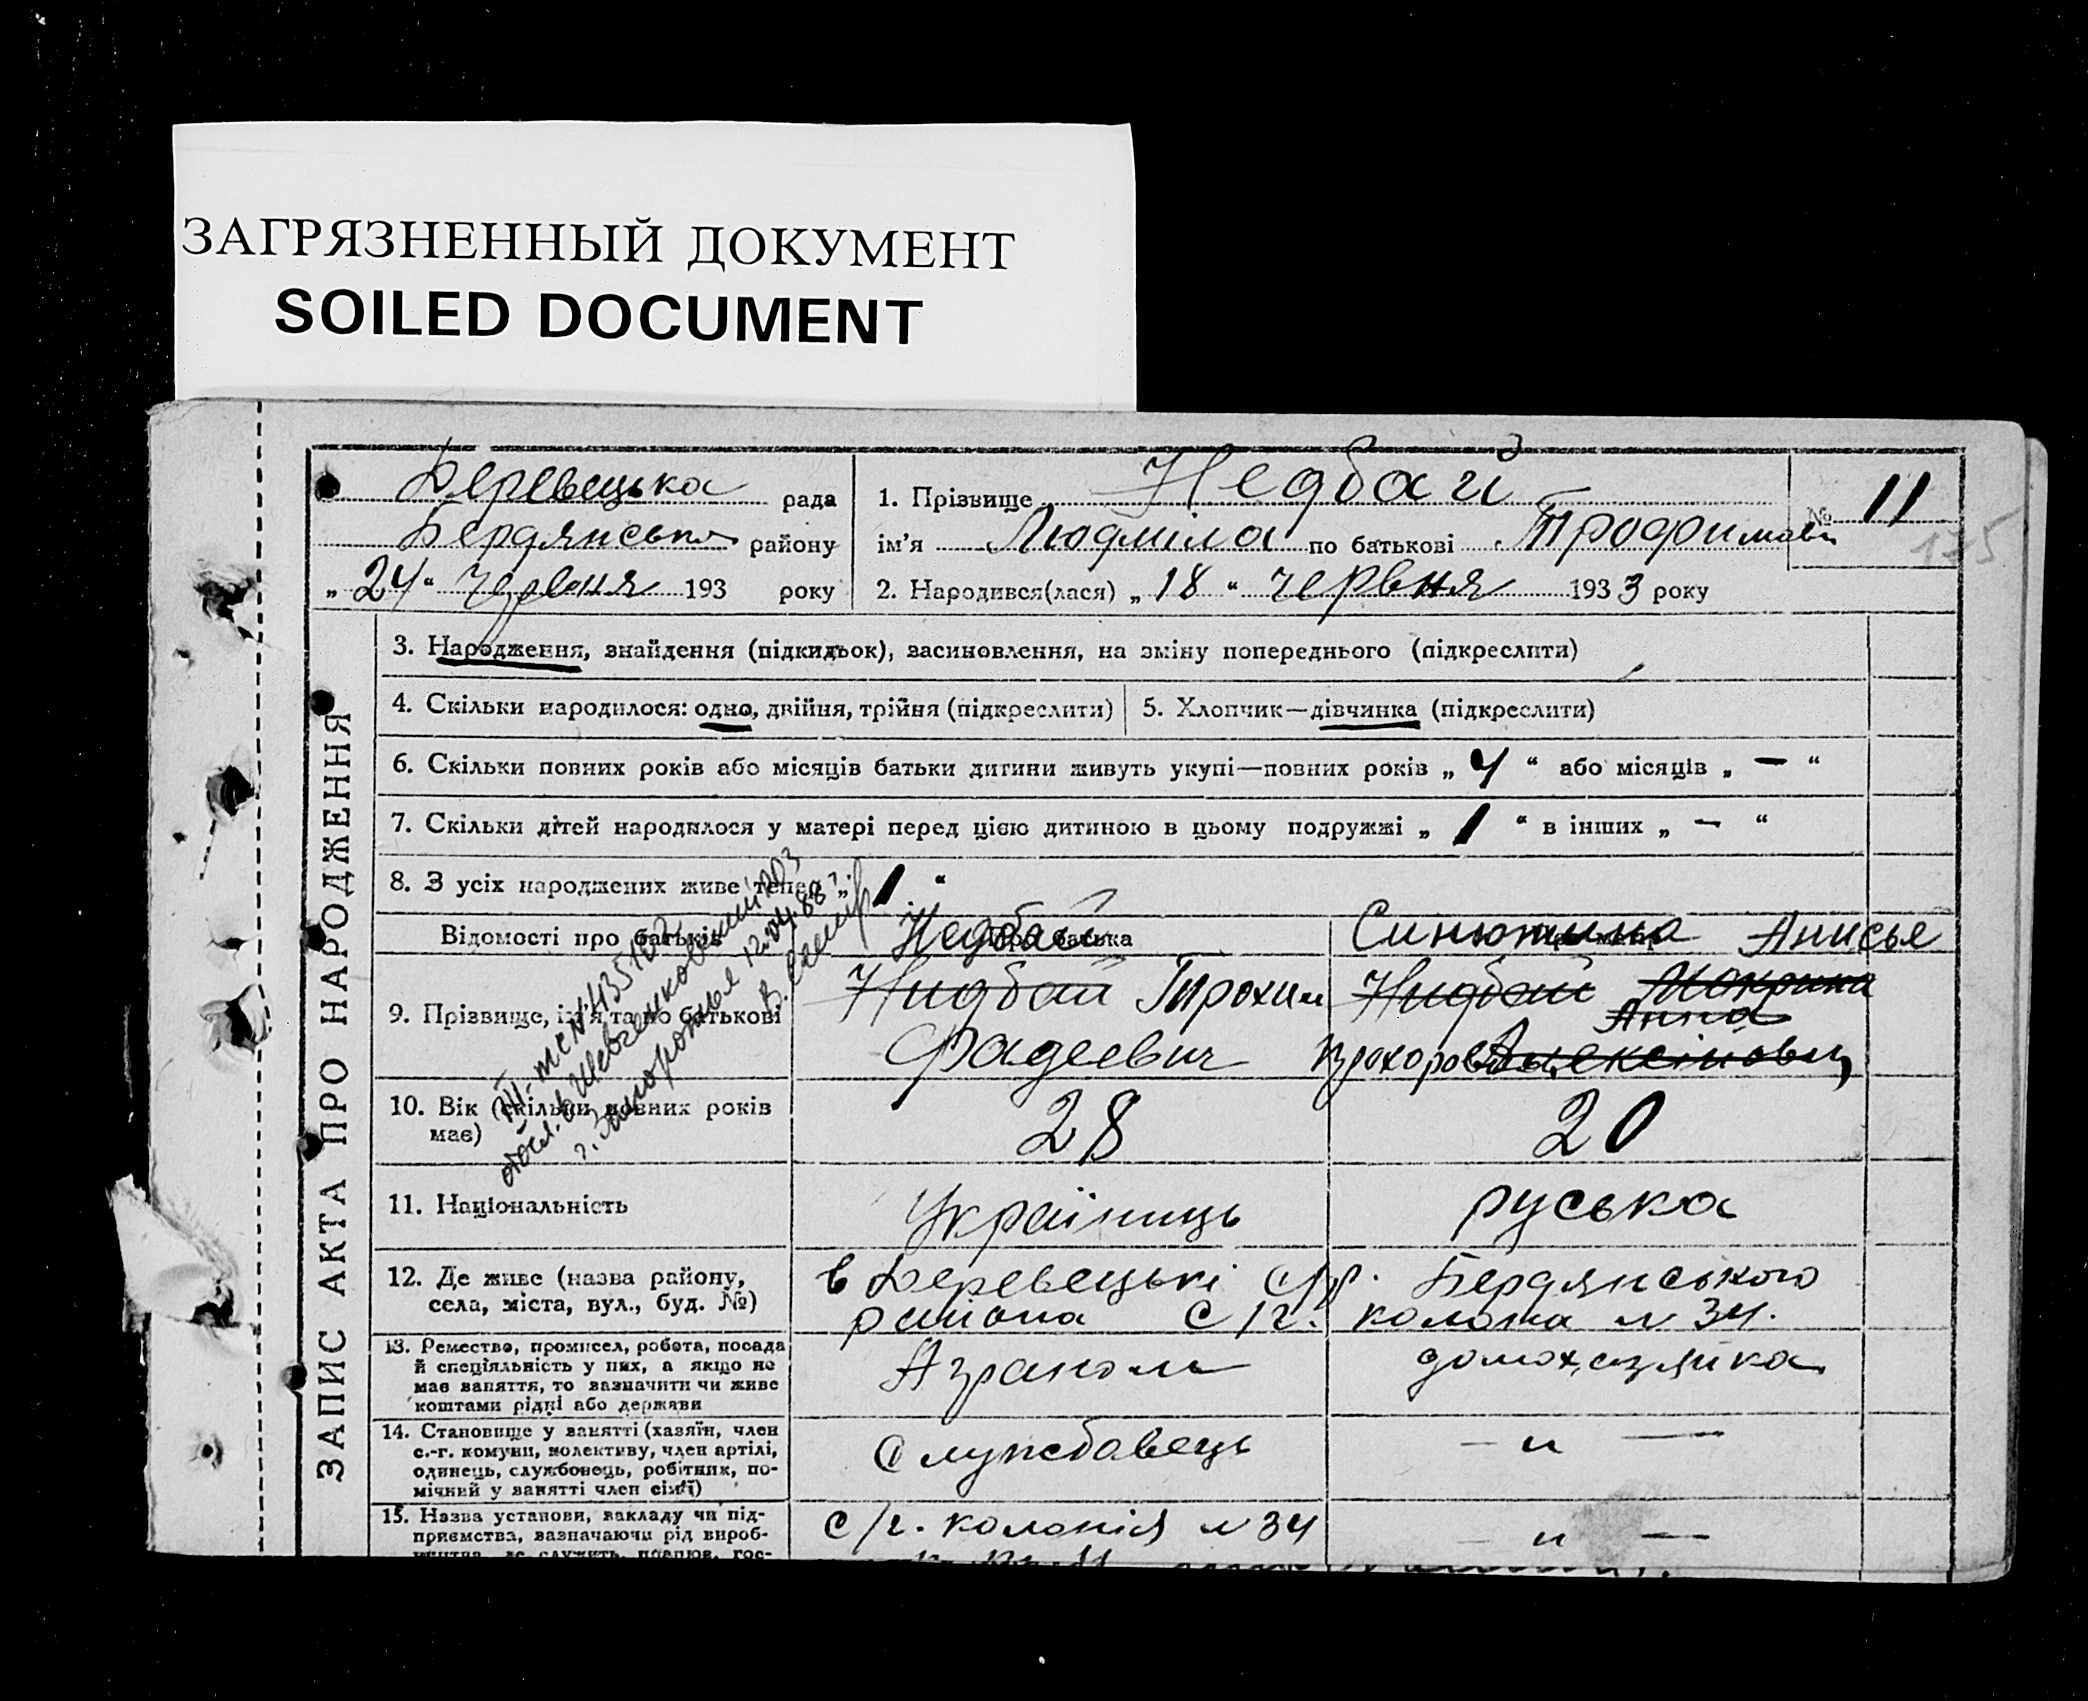 ЗАГРЯЗНЕННЫЙ ДОКУМЕНТ
SOILED DOCUMENT
ЗАПИС АКТА ПРО НАРОДЖЕННЯ
Деревецька рада
Бердянська району
„ 24 “ червня 193 року
1. Прізвище Недбай
ім'я Людміла по батькові Трофимовн
2. Народився(лася) „ 18 “ червня 1933 року
№ 11
3. Народження, знайдення (підкидьок), засиновлення, на зміну попереднього (підкреслити)
4. Скільки народилося: одно, двійня, трійня (підкреслити)
5. Хлопчик—дівчинка (підкреслити)
6. Скільки повних років або місяців батьки дитини живуть укупі—повних років „ 4 “ або місяців „ — “
7. Скільки дітей народилося у матері перед цією дитиною в цьому подружжі „ 1 “ в інших „ — “
8. З усіх народжених живе тепер „ 1 “
Відомості про батьків
Недбай
Про батька
Синютина Анисья
9. Прізвище, ім'я та по батькові
Нидбай Трохим
Фадеевич
Нидбай Мокрина
Анна
Прохоровна Алексіновн
10. Вік (скільки повних років має)
28
20
11. Національність
Українць
руська
12. Де живе (назва району,
села, міста, вул., буд. №)
в Деревецькі с/р. Бердянського
района с/г. колонія № 34.
13. Ремество, промисел, робота, посада
й спеціяльність у них, а якщо не
має заняття, то зазначити чи живе
коштами рідні або держави
Аграном
домохазяйка
14. Становище у занятті (хазяїн, член
с.-г. комуни, колективу, член артілі,
одинець, службовець, робітник, по-
мічний у занятті член сім'ї)
Службавець
— и —
15. Назва установи, закладу чи під-
приємства, зазначаючи рід вироб-
ництва, де служить, працює, гос-
с/г. колонія № 34
— и —
г. Запорожья 12.04.88 г.